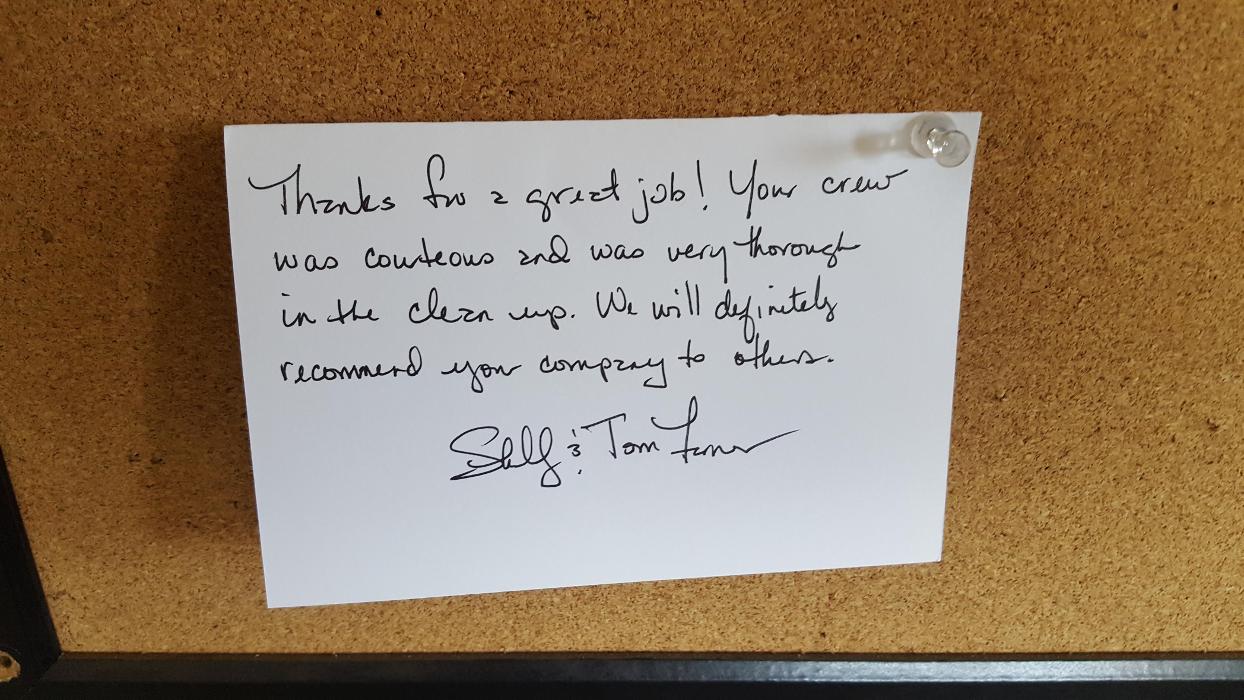 Thanks for a great job! Your crew
was courteous and was very thorough
in the clean up. We will definitely
recommend your company to others.
& Tom